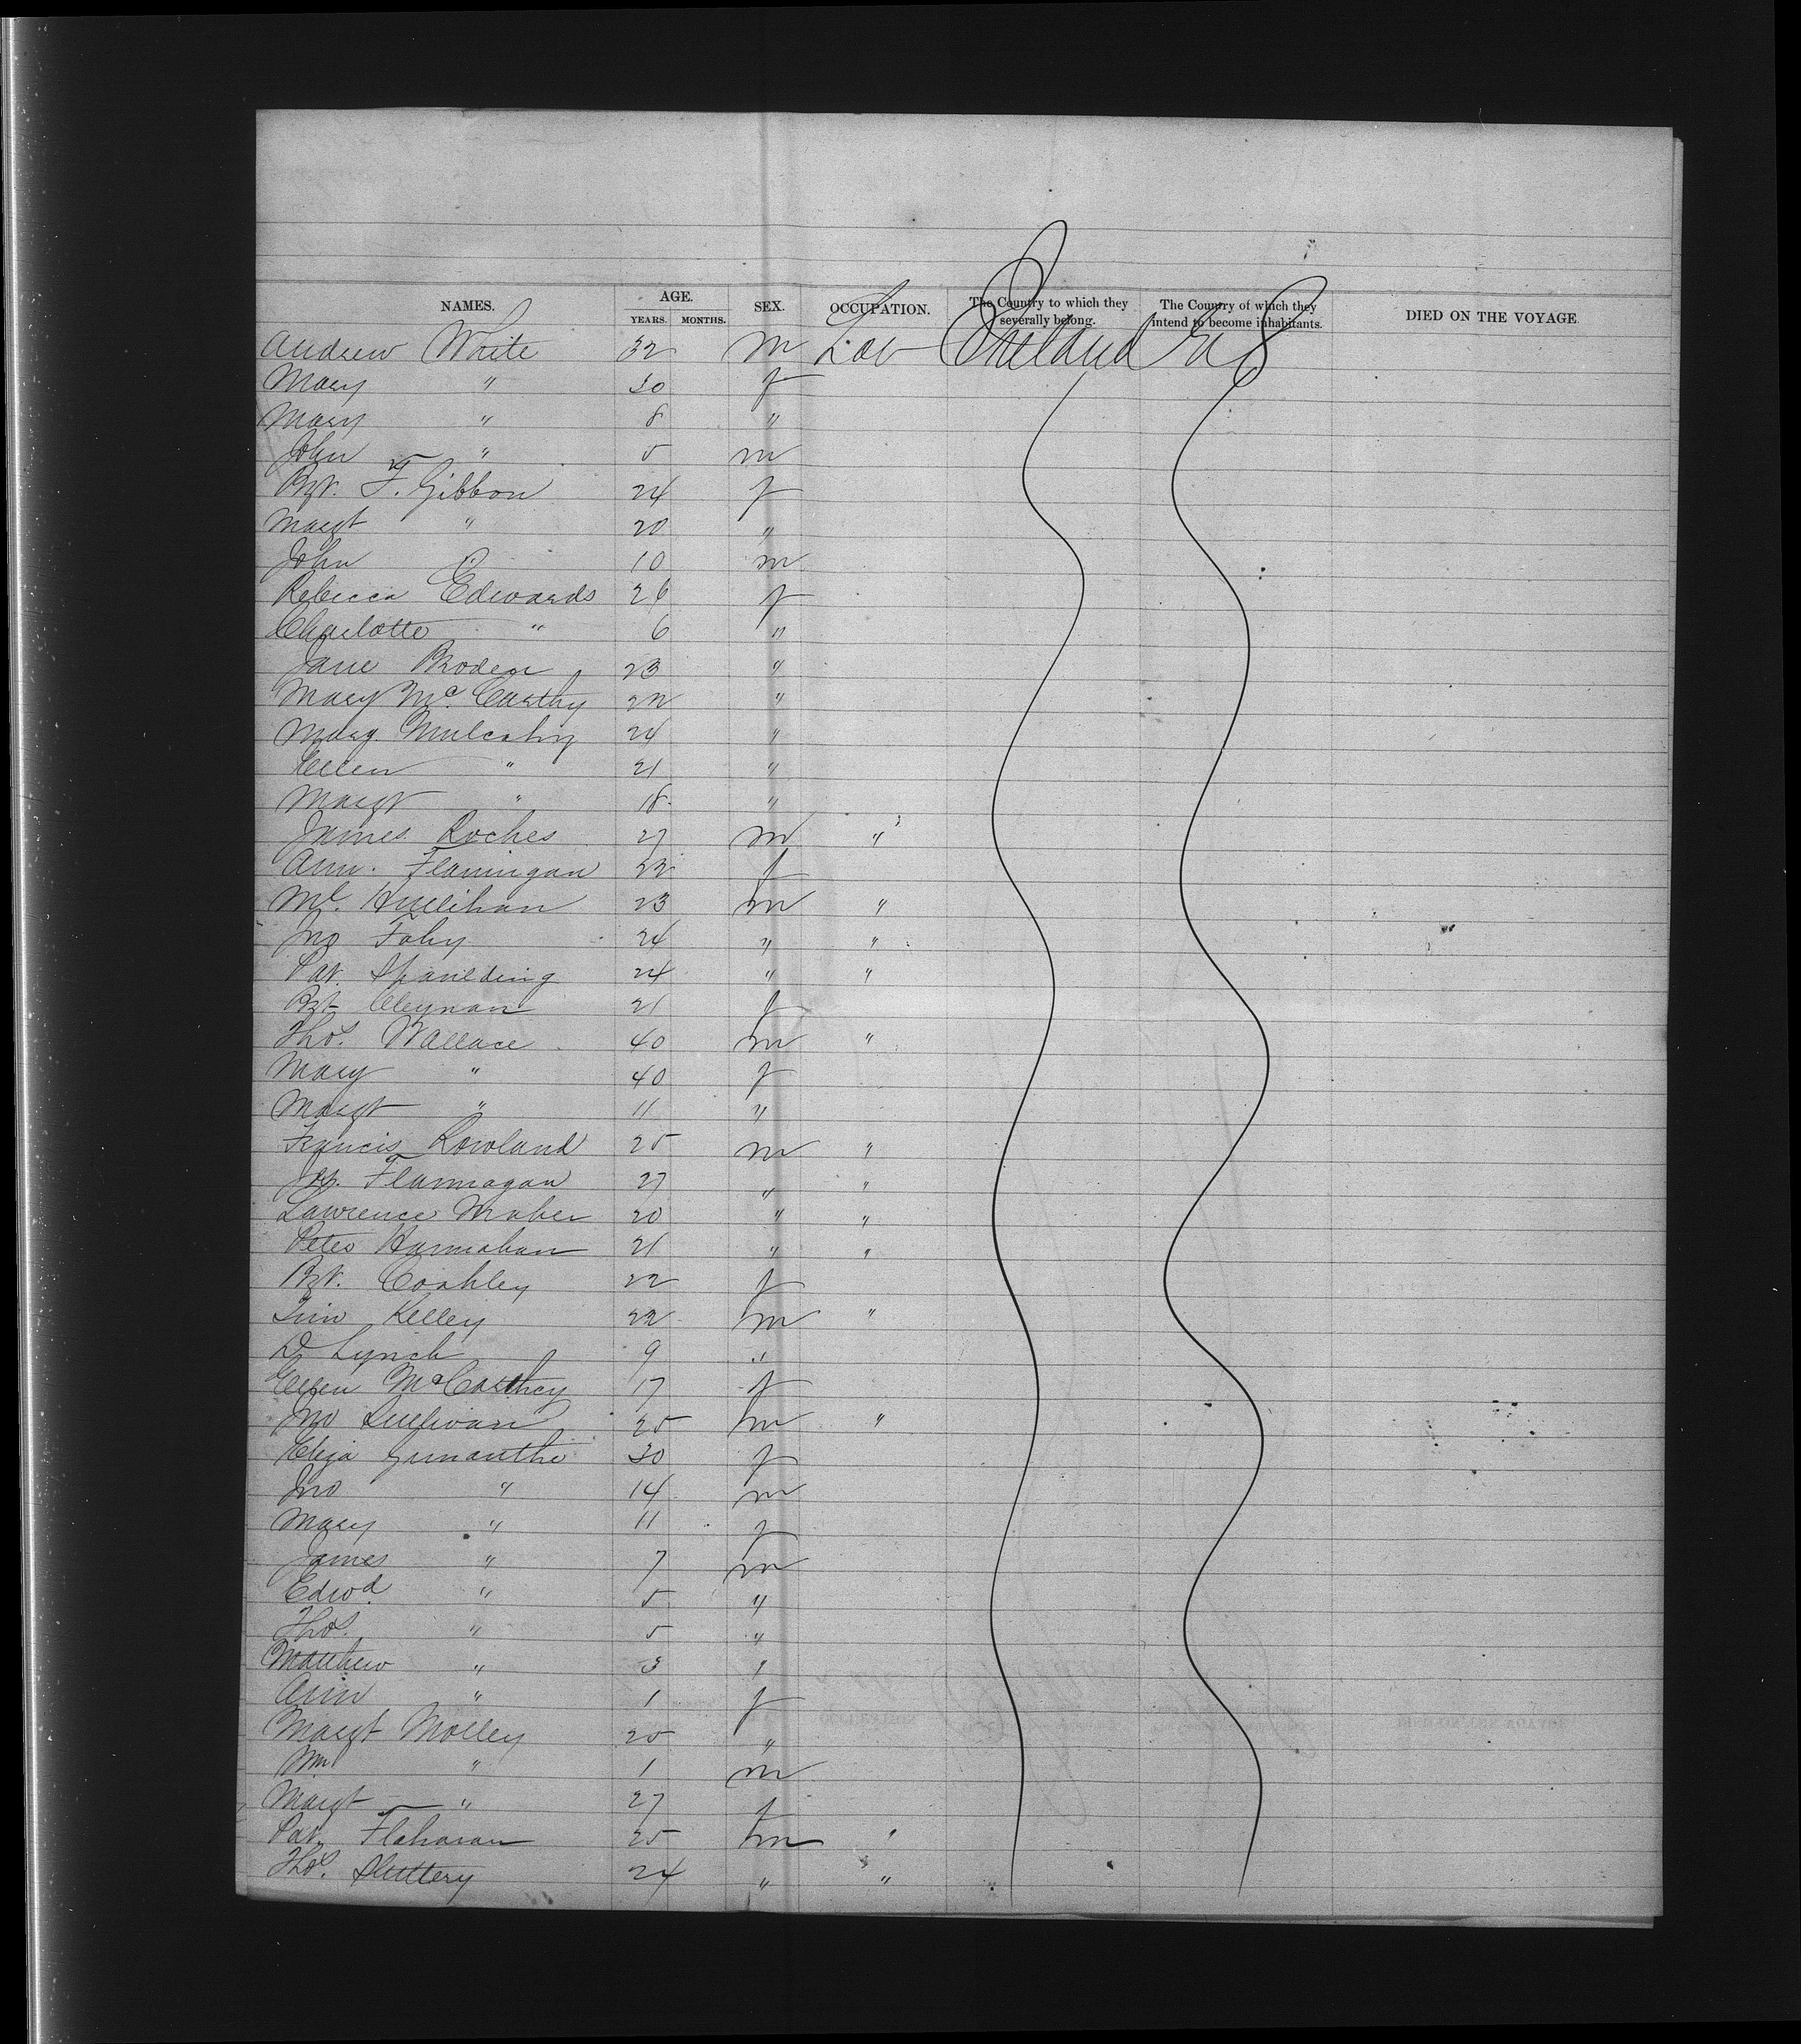 NAMES. AGE. SEX. OCCUPATION. The Country to which they severally belong. The Country of which they intend to become inhabitants. DIED ON THE VOYAGE.
YEARS. MONTHS.
Andrew White 32 m Lab Ireland U S
Mary " 30 f
Mary " 8 "
John " 5 m
Bgt. F. Gibbon 24 f
Margt " 20 "
John 10 m
Rebecca Edwards 26 f
Charlotte " 6 "
Jane Broder 23 "
Mary McCarthy 22 "
Mary Mulcahy 24 "
Ellen " 21 "
Margt " 18 "
James Roches 27 m "
Ann. Flannigan 22 f
Ml. Hullihan 23 m "
Jno Fahy 24 " "
Pat. Spaulding 24 " "
Bgt Cleynan 21 f
Thos. Wallace 40 m "
Mary " 40 f
Margt " 11 "
Francis Rowland 25 m "
Jas. Flannagan 27 " "
Lawrence Maher 20 " "
Peter Hannahan 21 " "
Bgt. Coakley 22 f
Tim Kelley 22 m "
D Lynch 9 "
Ellen McCarthey 17 f
Jno Sullivan 25 m "
Eliza 30 f
Jno " 14 m
Mary " 11 f
James " 7 m
Edwd. " 5 "
Thos. " 5 "
Matthew " 3 "
Ann " 1 f
Margt Molley 25 "
Wm " 1 m
Margt " 27 f
Pat. Flaharan 25 m "
Thos. Sluttery 24 " "